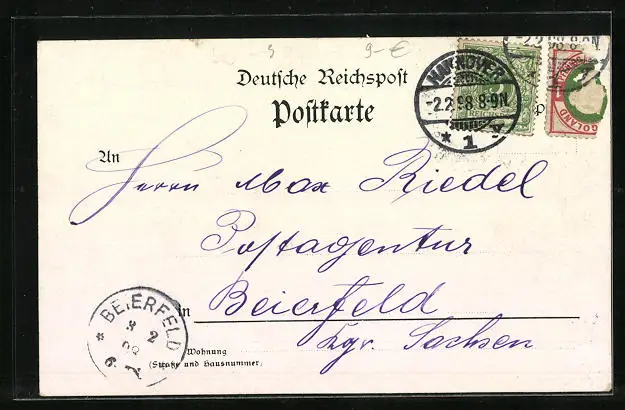 9-€
Deutsche Reichspost
Postkarte
HANNOVER
-2.2.98.8-9N
* 1 A
-2.2.98.8-9N
REICHSPOST
GOLAND
An
Herrn Max Riedel
Postagentur
in Beierfeld
Kgr. Sachsen
* BEIERFELD
3 2
98
6-7
Wohnung
(Straße und Hausnummer)